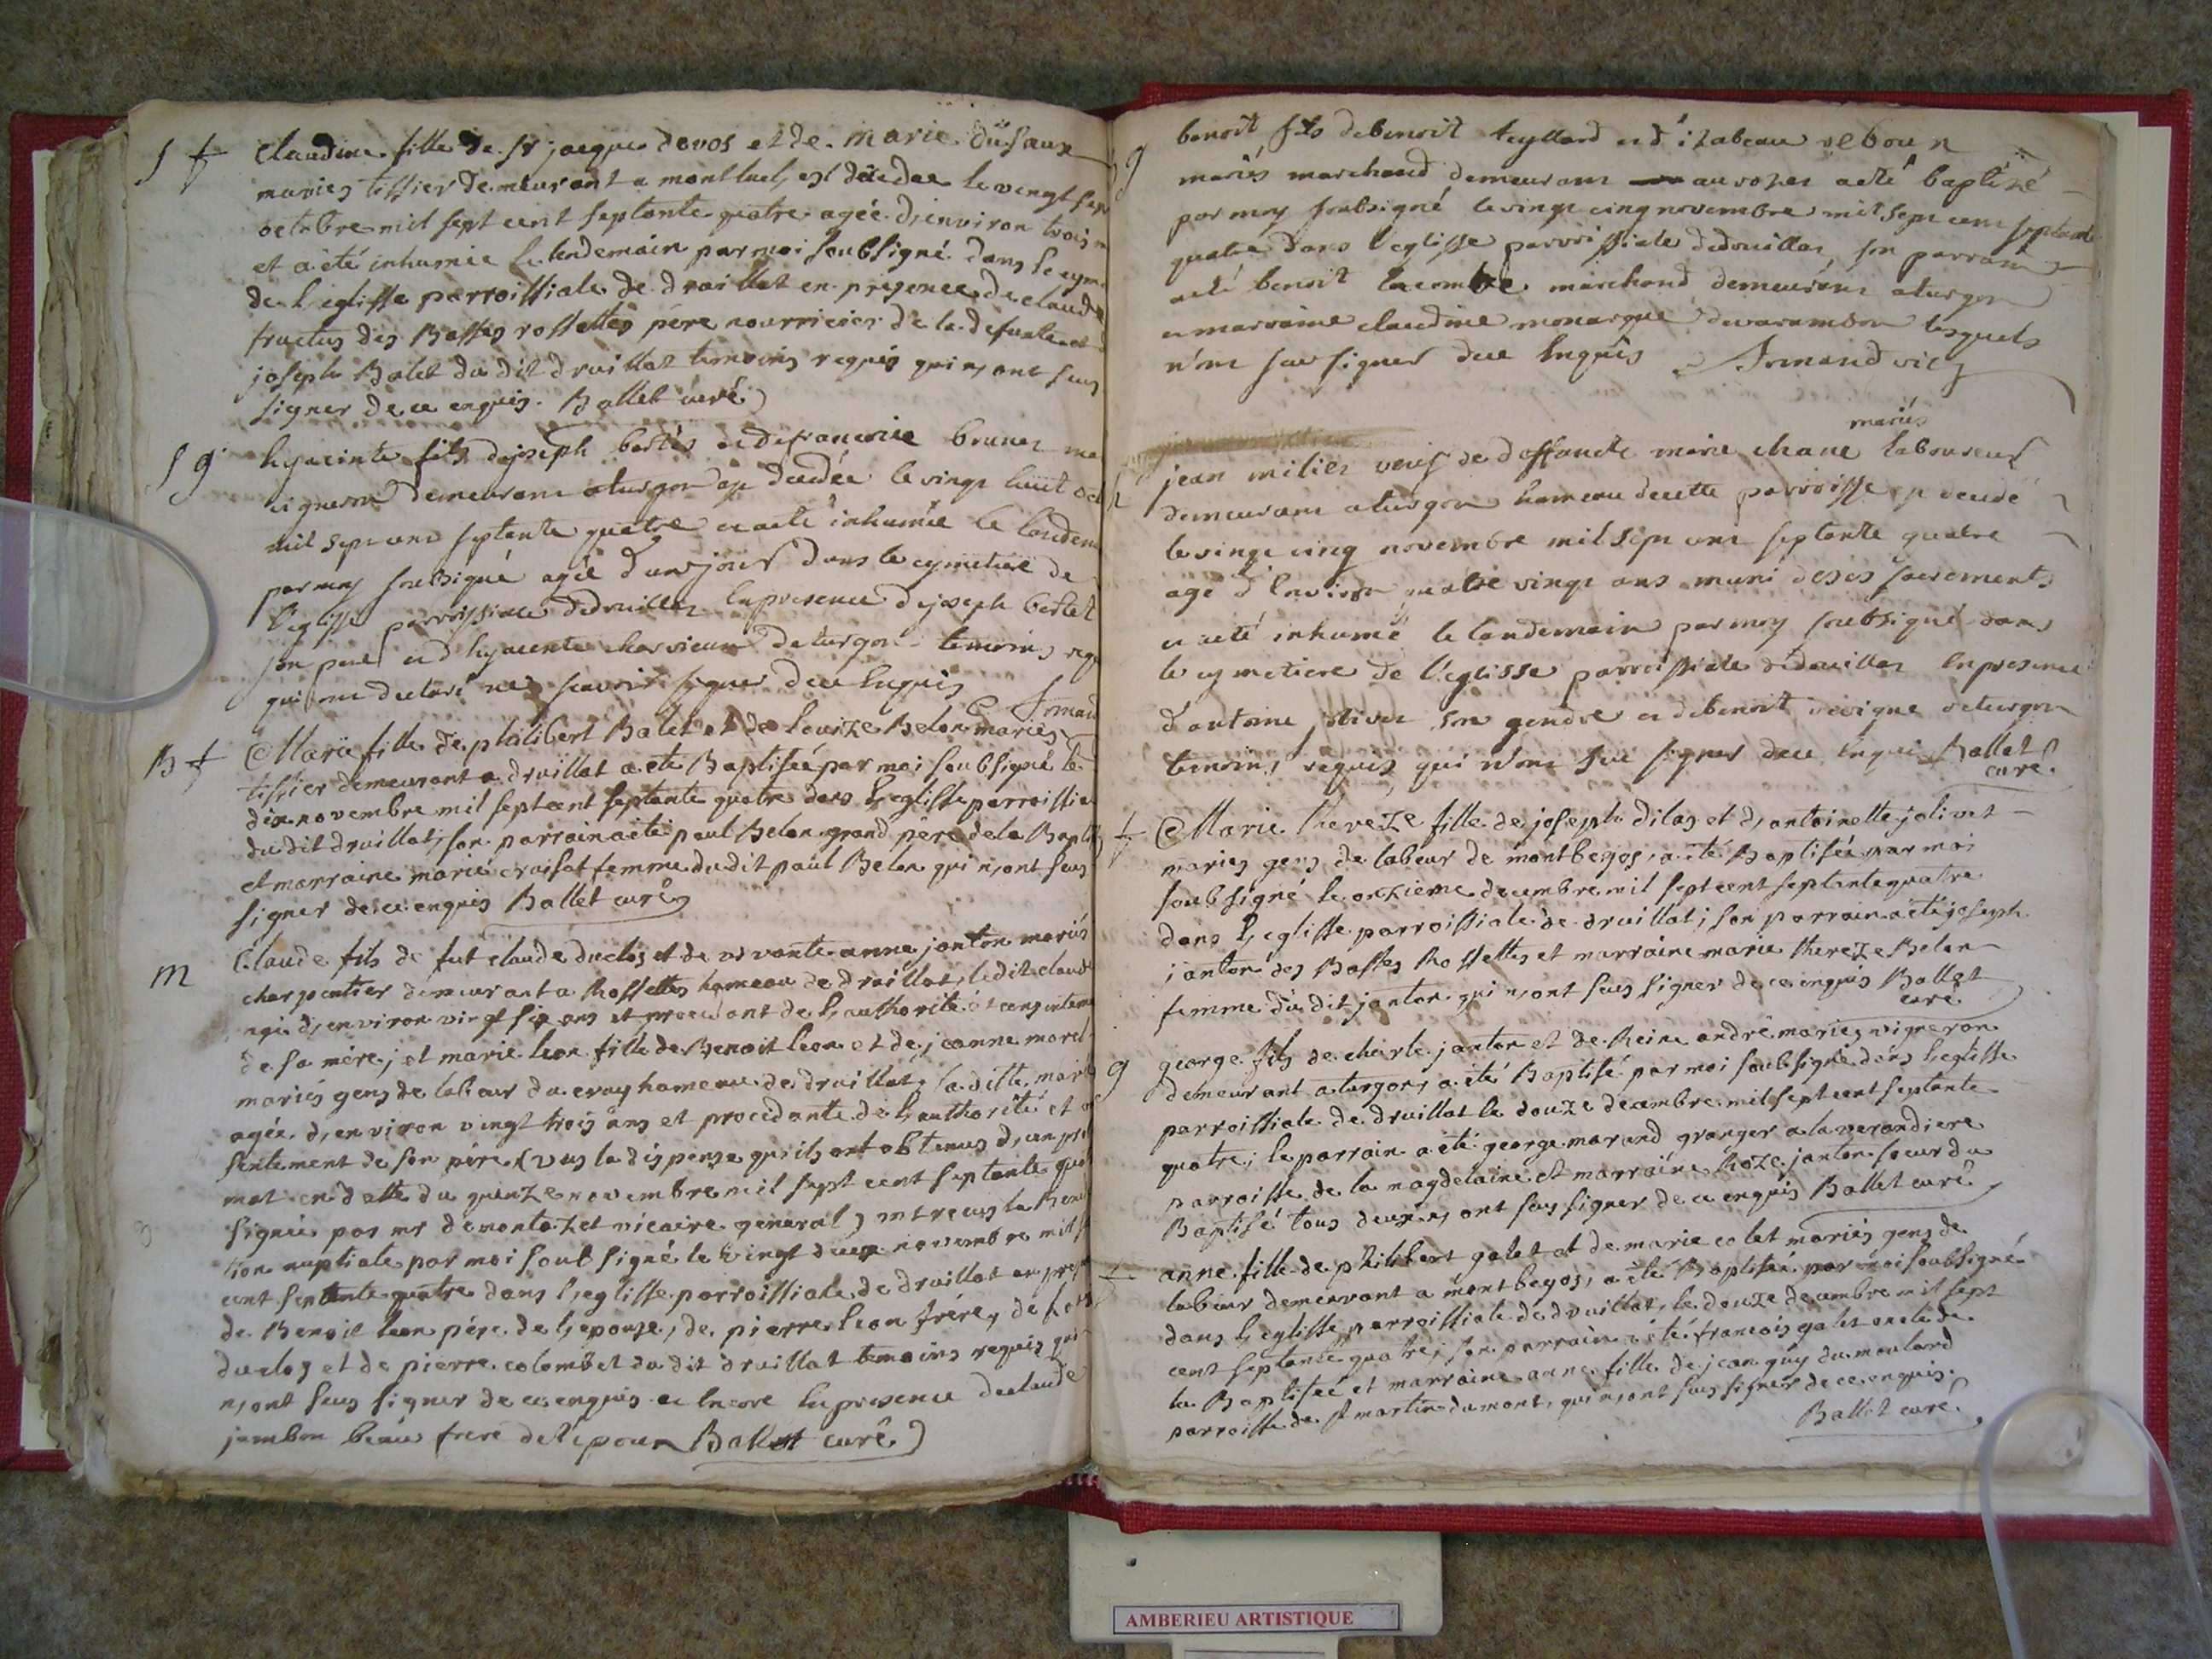 S f Claudine fille de sr jacque devos et de marie dufaux
mariez tissier demeurant a montluel, est décedée le vingt sept
octobre mil sept cent septante quatre agée d'environ trois
et a été inhumée le lendemain par moi soubsigné dans le cyme
de l'eglisse parroissiale de druillat en presence de claude
fructus des Basses rossettes père nourricier de la defunte et
joseph Balet du dit druillat temoins requis qui n'ont seus
signer de ce enquis. Ballet curé
S g hyacinte fils de joseph bertet et de francoise brunet ma
vigneron demeurant a turgon est decedée le vingt huit oct
mil sept cent septante quatre et a eté inhumée le landem
par moy soubsigné agée d'un jour dans le cymetiere de
l'eglisse parroissiale de druillat en presence de joseph bertet
son pere et d'hyacente de turgon temoins req
qui ont declaré ne scavoir signer de ce enquis
B f Marie fille de philibert Balet et de Louize Belon mariés
tissier demeurant a druillat a eté Baptisée par moi soubsigné le
dix novembre mil sept cent septante quatre dans l'eglisse parroissia
du dit druillat; son parrain a eté paul Belon grand père de la Bapti
et marraine marie cruisat femme du dit paul Belon qui n'ont seus
signer de ce enquis Ballet curé
m Claude fils de fut claude duclos et de vivante anne janton mariés
charpentier demeurant a Rossettes hameau de druillat, ledit claude
agé d'environ vingt six ans et procedant de l'authorité et consenteme
de sa mère; et marie leon fille de Benoit leon et de jeanne morel
mariés gens de labeur du cruy hameau de druillat, la ditte marie
agée d'environ vingt trois ans et procedante de l'authorité et
sentement de son père (vus la dispense qu'ils ont obtenus d'un
mat en datte du quinze novembre mil sept cent septante qua
signée par mr demontozet vicaire general) ont recus la Bened
tion nuptiale par moi soubsigné le vingt deux novembre mil s
cent septante quatre dans l'eglisse parroissiale de druillat en pres
de Benoit leon père de l'epouze, de pierre leon frère, de
duclos et de pierre colombet du dit druillat temoins requis qui
n'ont seus signer de ce enquis et encore en presence de claude
jambon beau frere de l'epoux Ballet curé
g benoit fils de benoit teyllard et d'izabeau rebour
mariés marchand demeurant au rozier a eté baptizé
par moy soubsigné le vingt cinq novembre mil sept cent septante
quatre dans l'eglisse parroissiale de druillat, son parrain
a eté benoit lacombe marchand demeurant a turgon
et marraine claudine monarque de varambon lesquels
n'ont seu signer de ce enquis Armand vic
mariés
jean milier veuf de deffuncte marie chane laboureur
demeurant a turgon hameau de cette parroisse est decedé
le vingt cinq novembre mil sept cent septante quatre
agé d'environ quatre vingt ans muni de ses sacrements
et a eté inhumé le landemain par moy soubsigné dans
le cymetiere de l'eglisse parroissiale de druillat en presence
d'antoine jolivet son gendre et de benoit de turgon
temoins requis qui n'ont seu signer de ce enquis Ballet
curé.
f Marie thereze fille de joseph dilas et d'antoinette jolivet
mariez gens de labeur de montbegos, a été Baptisée par moi
soubsigné le onzieme decembre mil sept cent septante quatre
dans l'eglisse parroissiale de druillat; son parrain a été joseph
janton des Basses Rossettes et marraine marie thereze Belon
femme du dit janton qui n'ont seus signer de ce enquis Ballet
curé
g george fils de charle janton et de Reine andré mariez vigneron
demeurant a turgon, a été Baptisé par moi soubsigné dans l'eglisse
parroissiale de druillat le douze decembre mil sept cent septante
quatre; le parrain a été george marand granger a la verandiere
parroisse de la magdelaine et marraine Roze janton soeur du
Baptisé tous deux n'ont seus signer de ce enquis Ballet curé
f anne fille de philibert galet et de marie colet mariés gens de
labeur demeurant a montbegos, a été Baptisée par moi soubsigné
dans l'eglisse parroissiale de druillat, le douze decembre mil sept
cent septante quatre; son parrain a été francois galet oncle de
la Baptisée et marraine anne fille de jean guy du moulard
parroisse de st martin du mont, qui n'ont seus signer de ce enquis.
Ballet curé.
AMBERIEU ARTISTIQUE